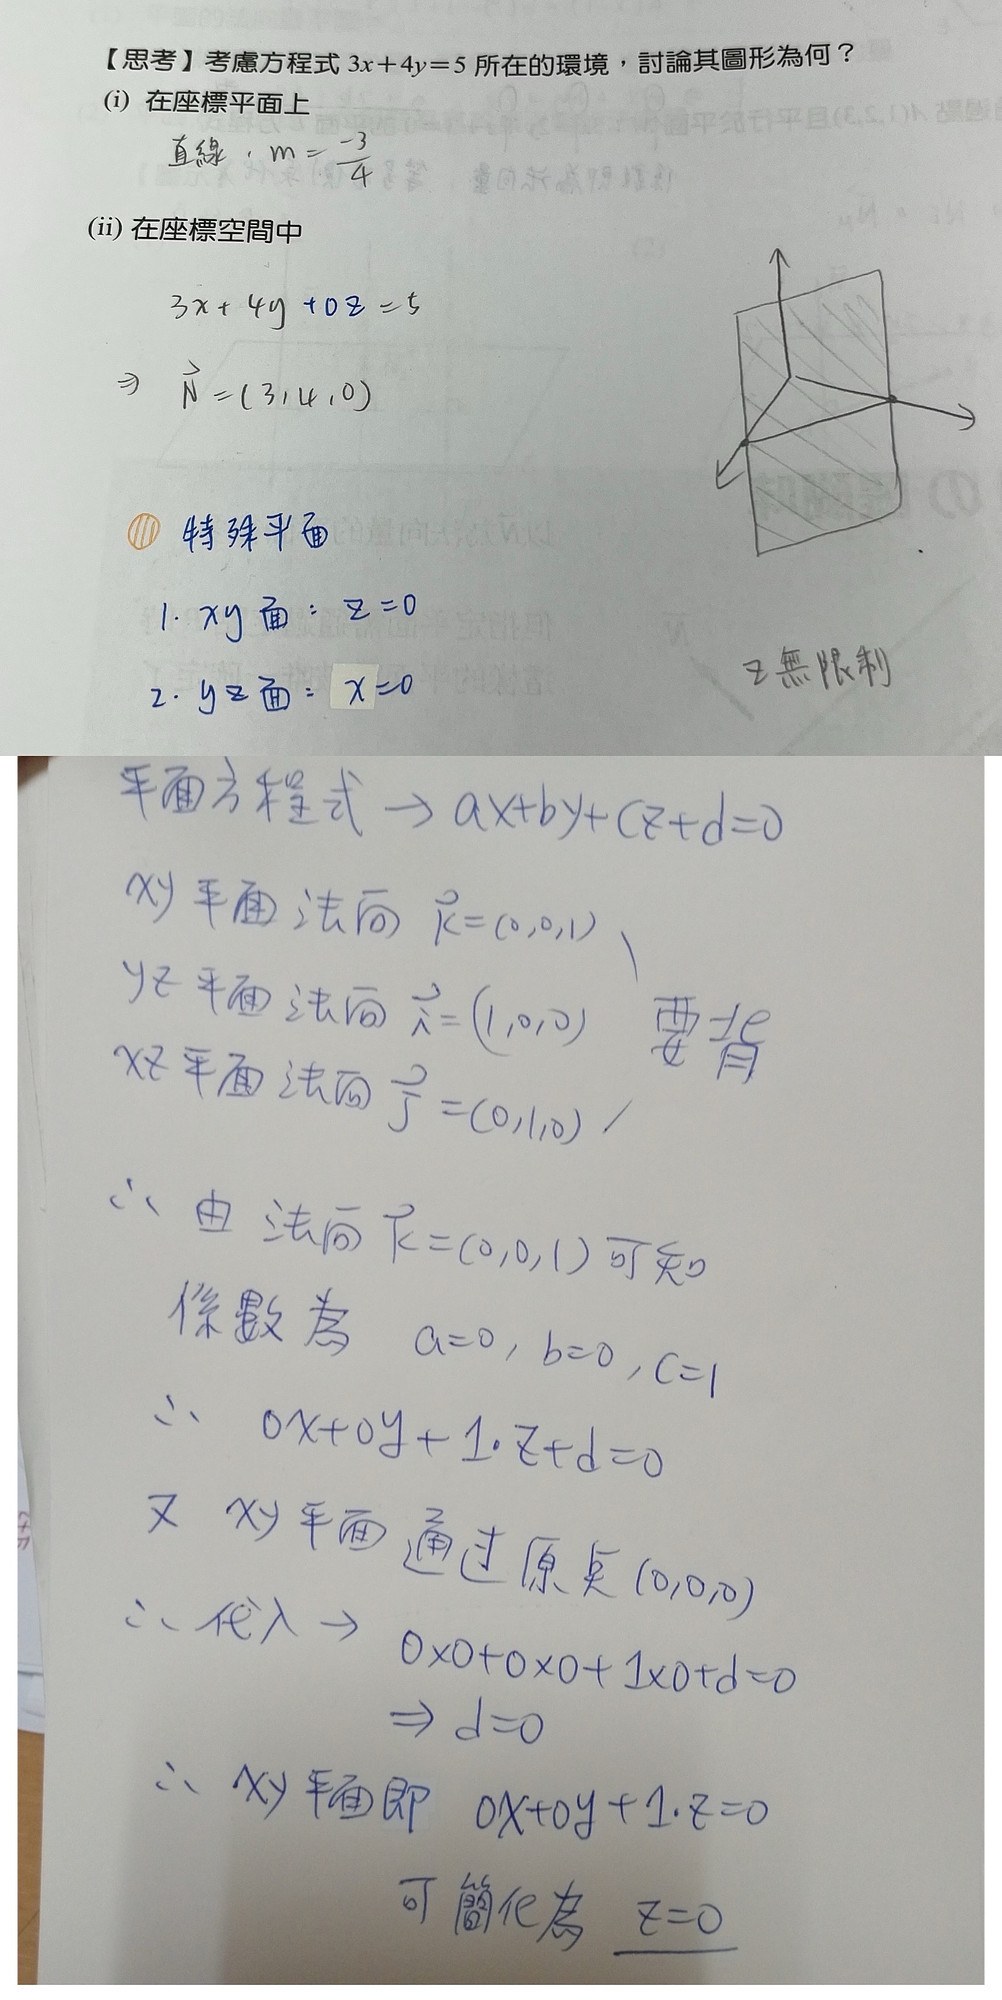 【思考】考慮方程式 3x+4y=5 所在的環境，討論其圖形為何？
(i) 在座標平面上
直線，m = -3/4
(ii) 在座標空間中
3x + 4y + 0z = 5
⇒ N⃗ = (3, 4, 0)
特殊平面
1. xy 面： z=0
2. yz 面： x=0
z 無限制
平面方程式 → ax+by+cz+d=0
xy 平面 法向 k⃗=(0,0,1)
yz 平面 法向 i⃗=(1,0,0) 要背
xz 平面 法向 j⃗=(0,1,0)
∴ 由 法向 k⃗=(0,0,1) 可知
係數為 a=0, b=0, c=1
∴ 0x+0y+1·z+d=0
又 xy 平面 通过原點 (0,0,0)
∴ 代入 → 0×0+0×0+1×0+d=0
⇒ d=0
∴ xy 平面即 0x+0y+1·z=0
可簡化為 z=0